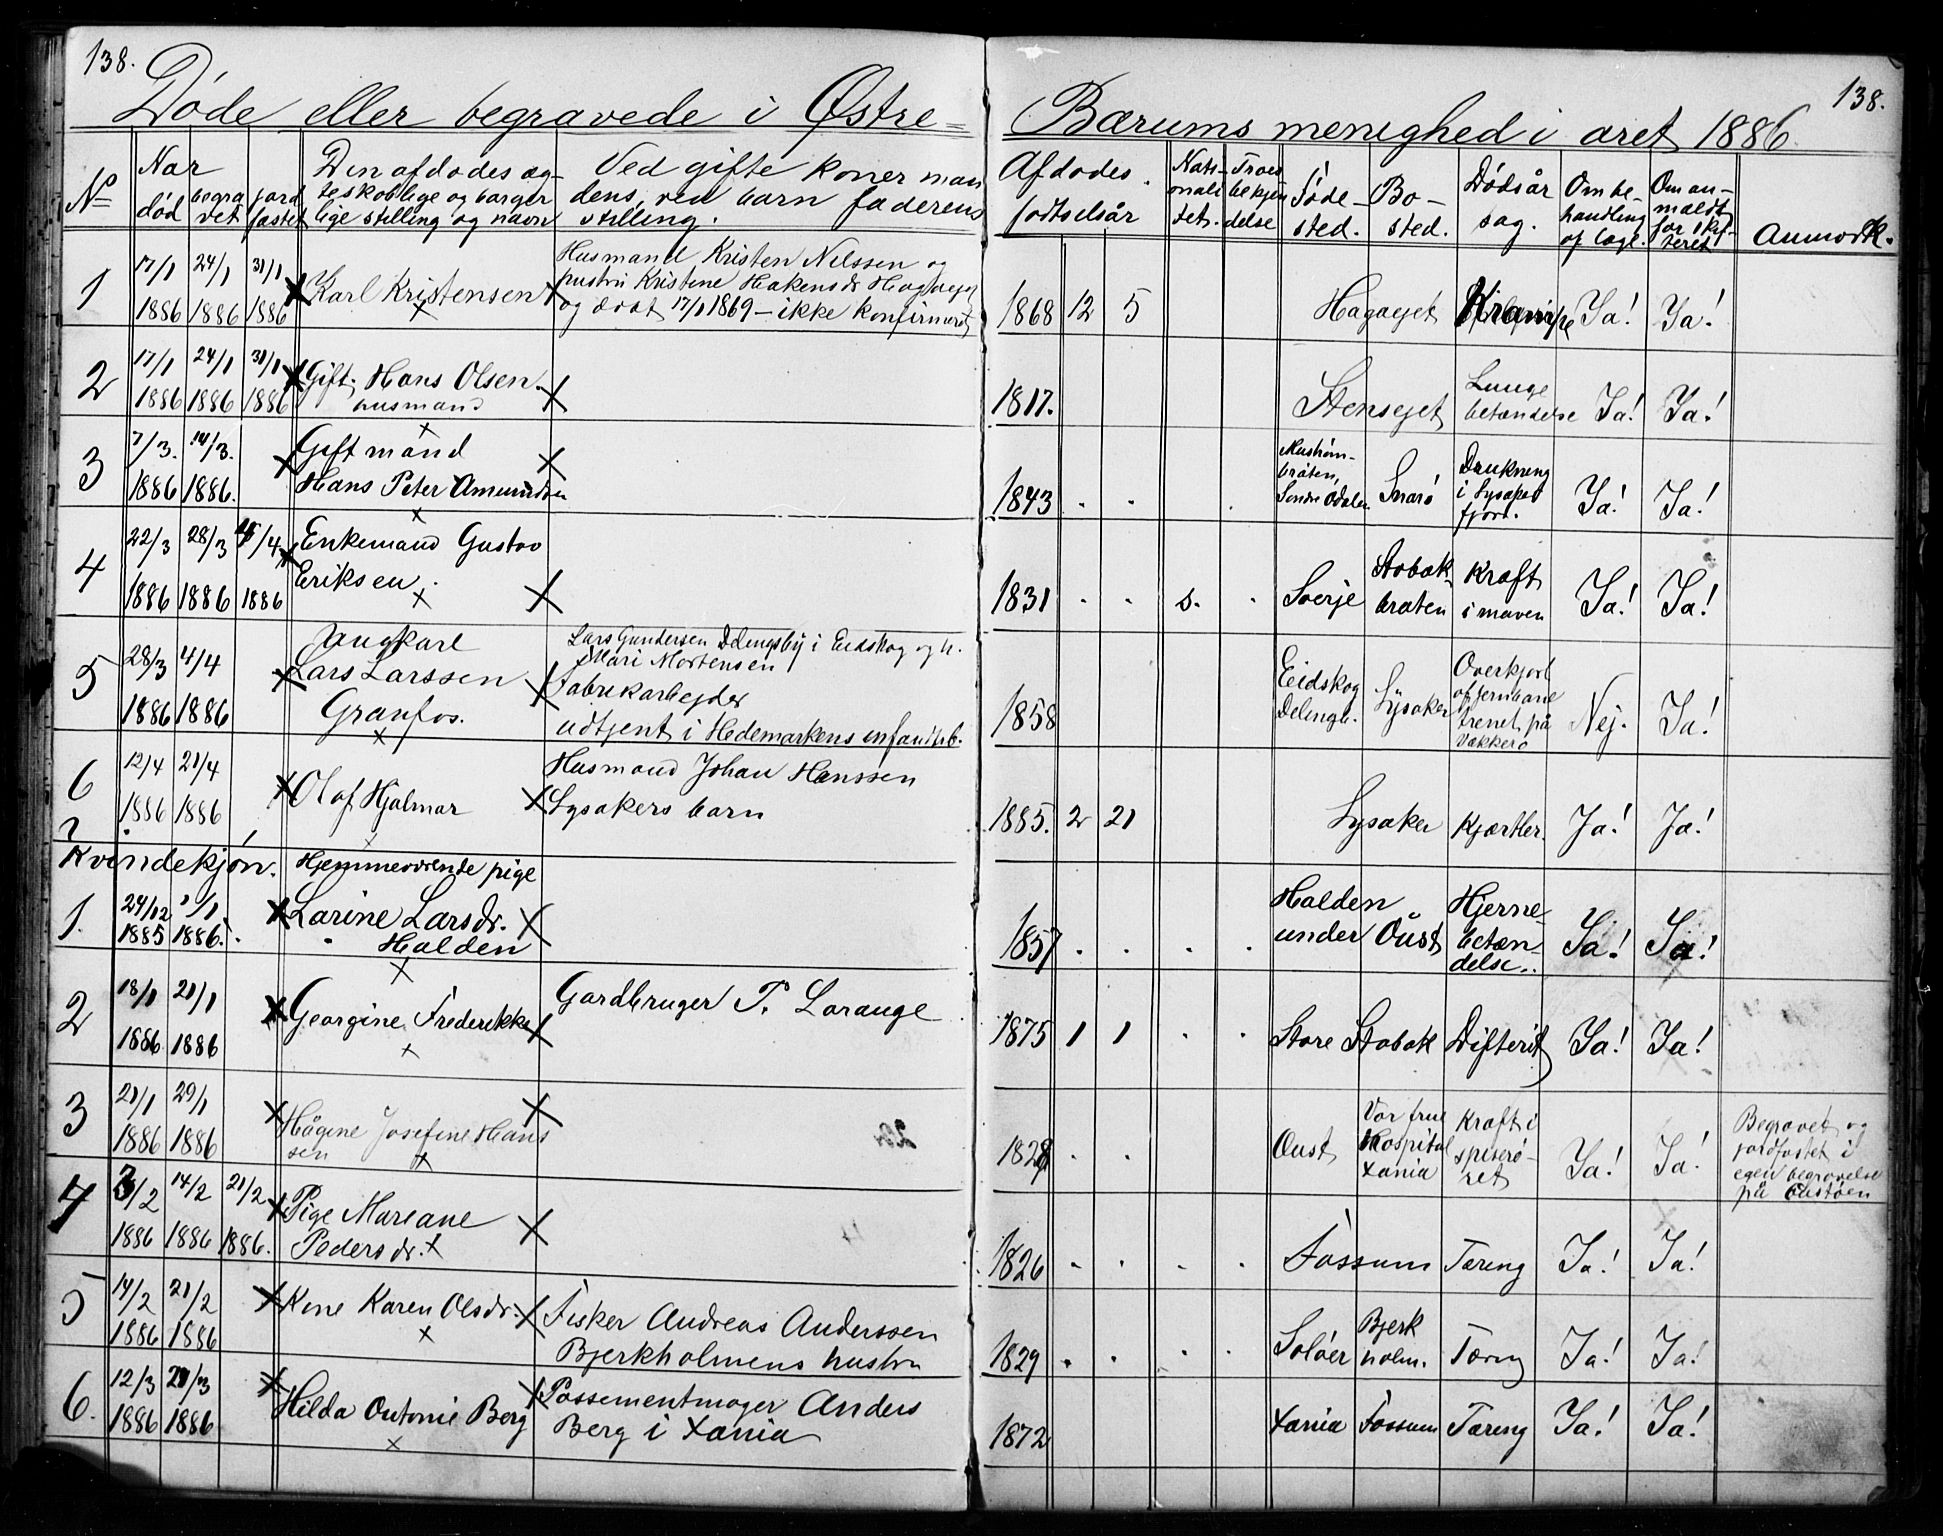 138.
138.
Døde eller begravede i Østre=
Bærums menighed i året 1886.
No
Når
død
begra
vet
jord
fæstet
Den afdødes æg-
teskablige og borger
lige stilling og navn
Ved gifte koner man
dens, ved barn faderens
stilling.
Afdødes
fødselsår
Nati-
onali
tet.
Troes
bekjen
delse
Føde-
sted.
Bo-
sted.
Dødsår
sag.
Om be-
handling
af læge.
Om an-
meldt
for skif-
teret
Anmærk.
1
17/1
1886
24/1
1886
31/1
1886
Karl Kristensen
Husmand Kristen Nilssen og
hustru Kristine Hakensdr Hagaejet
og død 17/1 1869 - ikke konfirmeret
1868 12 5
Hagaejet
Krampe
Ja!
Ja!
2
17/1
1886
24/1
1886
31/1
1886
Gift. Hans Olsen
husmand
1817.
Stensejet
Lunge
betændelse
Ja!
Ja!
3
7/3.
1886
14/3.
1886.
Gift mand
Hans Peter Amundsen
1843
bråten,
Søndre Odalen
Snarø
Drukning
i Lysaker
fjord.
Ja!
Ja!
4
22/3
1886
28/3
1886
/4
1886
Enkemand Gustav
Eriksen.
1831
s.
Sverje
Stabæk-
bråten
Kræft
i maven
Ja!
Ja!
5
28/3
1886
4/4
1886
Ungkarl
Lars Larssen
Granfos.
Lars Gundersen Delingsby i Eidskog og h.
Mari Mortensen
Fabrikarbejder
udtjent i Hedemarkens infandtrb.
1858
Eidskog
Delingb.
Lysaker
Overkjørt
af jernbane
trenet på
Vækkerø
Nej.
Ja!
6
12/4
1886
21/4
1886
Olaf Hjalmar
Husmand Johan Hanssen
Lysakers barn
1885. 2 21
Lysaker
Kjertler.
Ja!
Ja!
Kvindekjøn.
1.
24/12
1885
1/1
1886.
Hjemmeværende pige
Larine Larsdr.
Halden
1857
Halden
under Oust
Hjerne-
betæn-
delse.
Ja!
Ja!
2
18/1
1886
21/1
1886
Georgine Frederikke
Gardbruger P. Lorange
1875 1 1
Store Stabæk
Difterit
Ja!
Ja!
3
21/1
1886
29/1
1886
Hågine Josefine Hans
sen
Oust
Vor frue
Hospital
Xania
Kræft i
spiserø-
ret
Ja!
Ja!
Begravet og
jordfæstet i
egen begravelse
på Oustøen
4
3/2
1886
14/2
1886
21/2
1886.
Pige Mariane
Pedersdr.
1826
Fossum
Tæring
Ja!
Ja!
5
14/2
1886
21/2
1886
Kone Karen Olsdr.
Fisker Andreas Anderssen
Bjerkholmens hustru
1829
Soløer
Bjerk
holm.
Tæring
Ja!
Ja!
6.
12/3
1886
21/3
1886
Hilda Antonie Berg
Possementmager Anders
Berg i Xania
1872
Xania
Fossum
Tæring
Ja!
Ja!